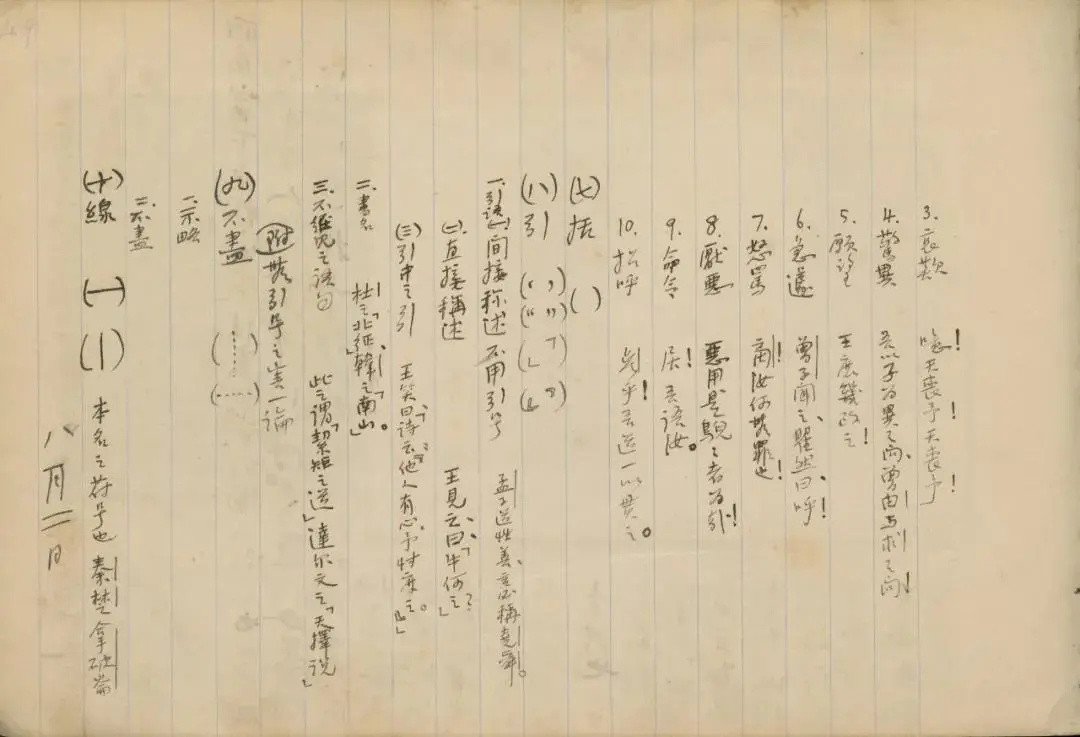 3. 哀歎 噫！天喪予！天喪予！
4. 驚異 吾以子為異之問、曾由与求之問！
5. 願望 王庶幾改之！
6. 急遽 曾子聞之、瞿然曰、呼！
7. 怒罵 商！汝何無罪也！
8. 厭惡 惡用是鶃鶃者為哉！
9. 命令 居！吾語汝。
10. 招呼 參乎！吾道一以貫之。
(七) 括 ( )
(八) 引 (‘ ’) (“ ”) (「 」) (『 』)
一. 引語(一) 間接称述 不用引号 孟子道性善、言必稱堯舜。
(二) 直接稱述 王見之、曰、「牛何之？」
(三) 引中之引 王笑曰、「诗云、『他人有心、予忖度之。』」
二. 書名 杜之「北征」、韓之「南山」。
三. 不雅見之语句 此之谓「絜矩之道」達尔文之「天擇说」
附 無引号之害一論
(九) 不盡 (……) (……)
一. 示略
二. 不盡
(十) 線 (一) (｜) 本名之符号也 秦 楚 拿破崙
八月二日